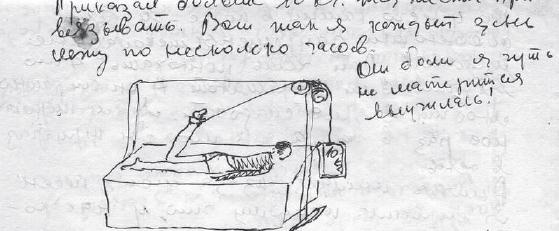 Приказал больше 10 кг.
вязывать. Вот так я каждый день
лежу по несколко часов.
От боли я чуть
не матерится
выучилась!
10